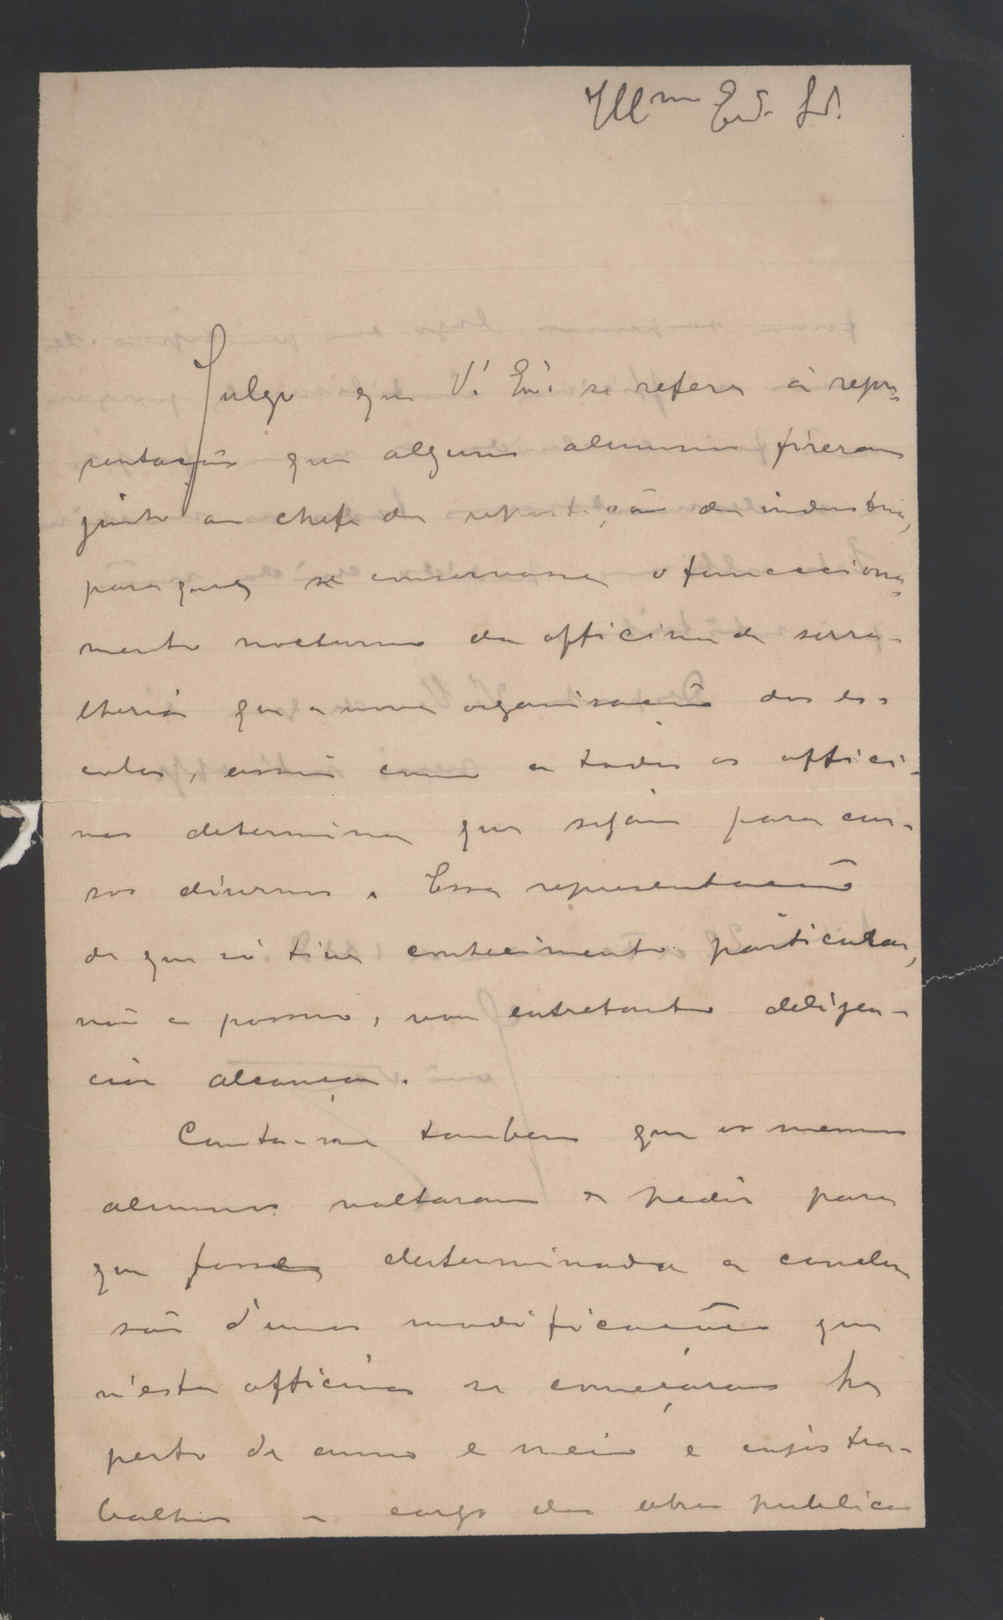 Illmo Exo Sr.
Julgo que V.ª Ex.ª se refere á repre-
sentação que alguns alumnos fizeram
junto ao chefe da repartição da industria,
para que se conservasse o funcciona-
mento nocturno da officina de serra-
lheria que a nova organisação das es-
colas, assim como a todas as offici-
nas determina que sejam para cur-
sos diurnos. Essa representação
de que só tive conhecimento particular,
não a possuo, vou entretanto deligen-
ciar alcançar.
Consta-me tambem que os mesmos
alumnos voltaram a pedir para
que fosse determinada a conclu
são d'umas modificações que
n'esta officina se começaram ha
perto de anno e meio e cujos tra-
balhos a cargo das obras publicas